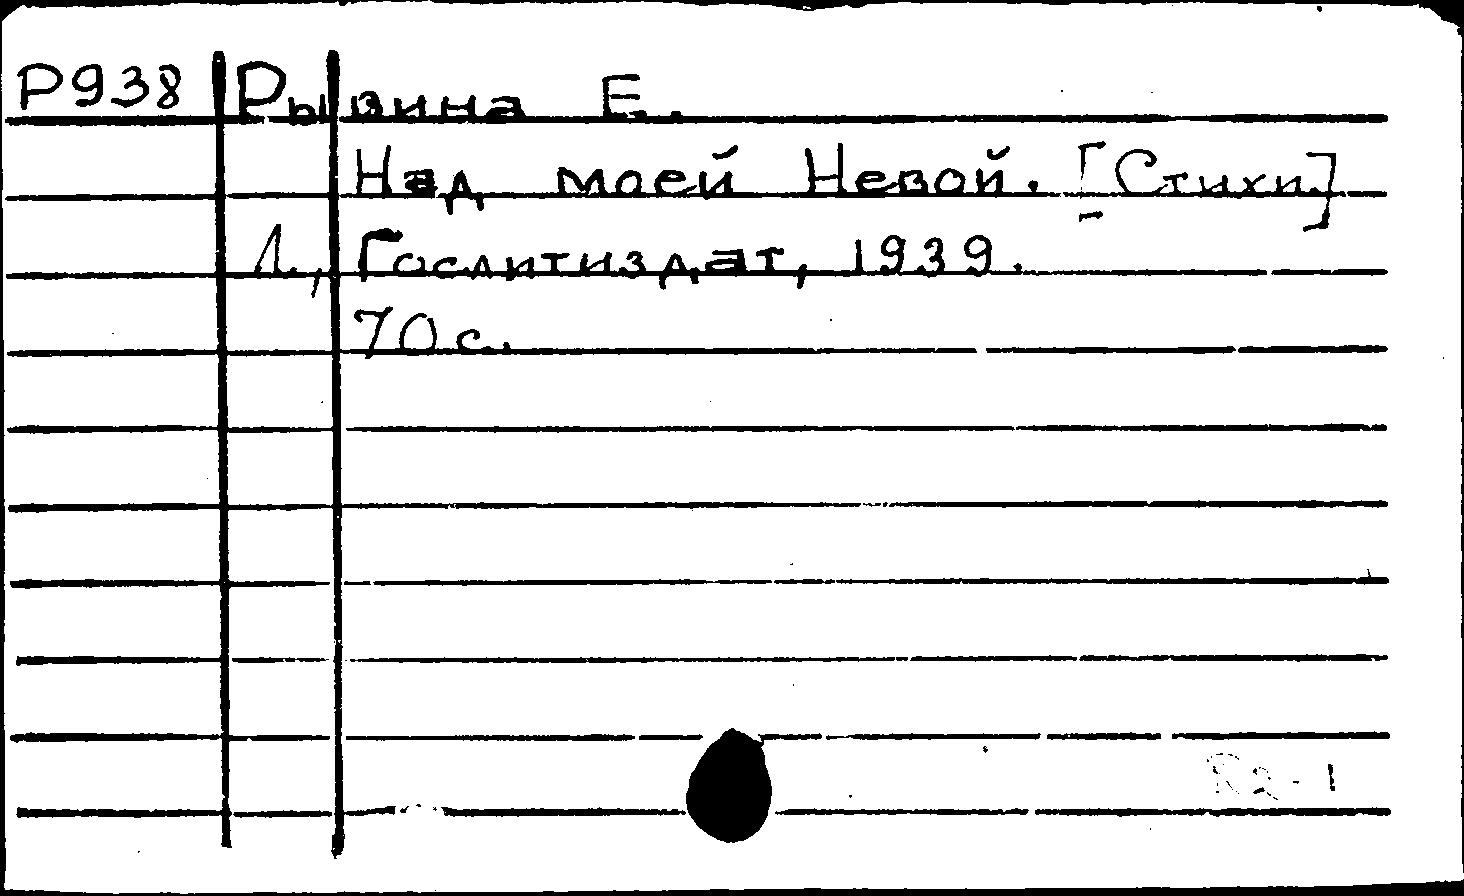 Р938 Рывина Е.
Над моей Невой. [Стихи]
Л., Гослитиздат, 1939.
70 с.